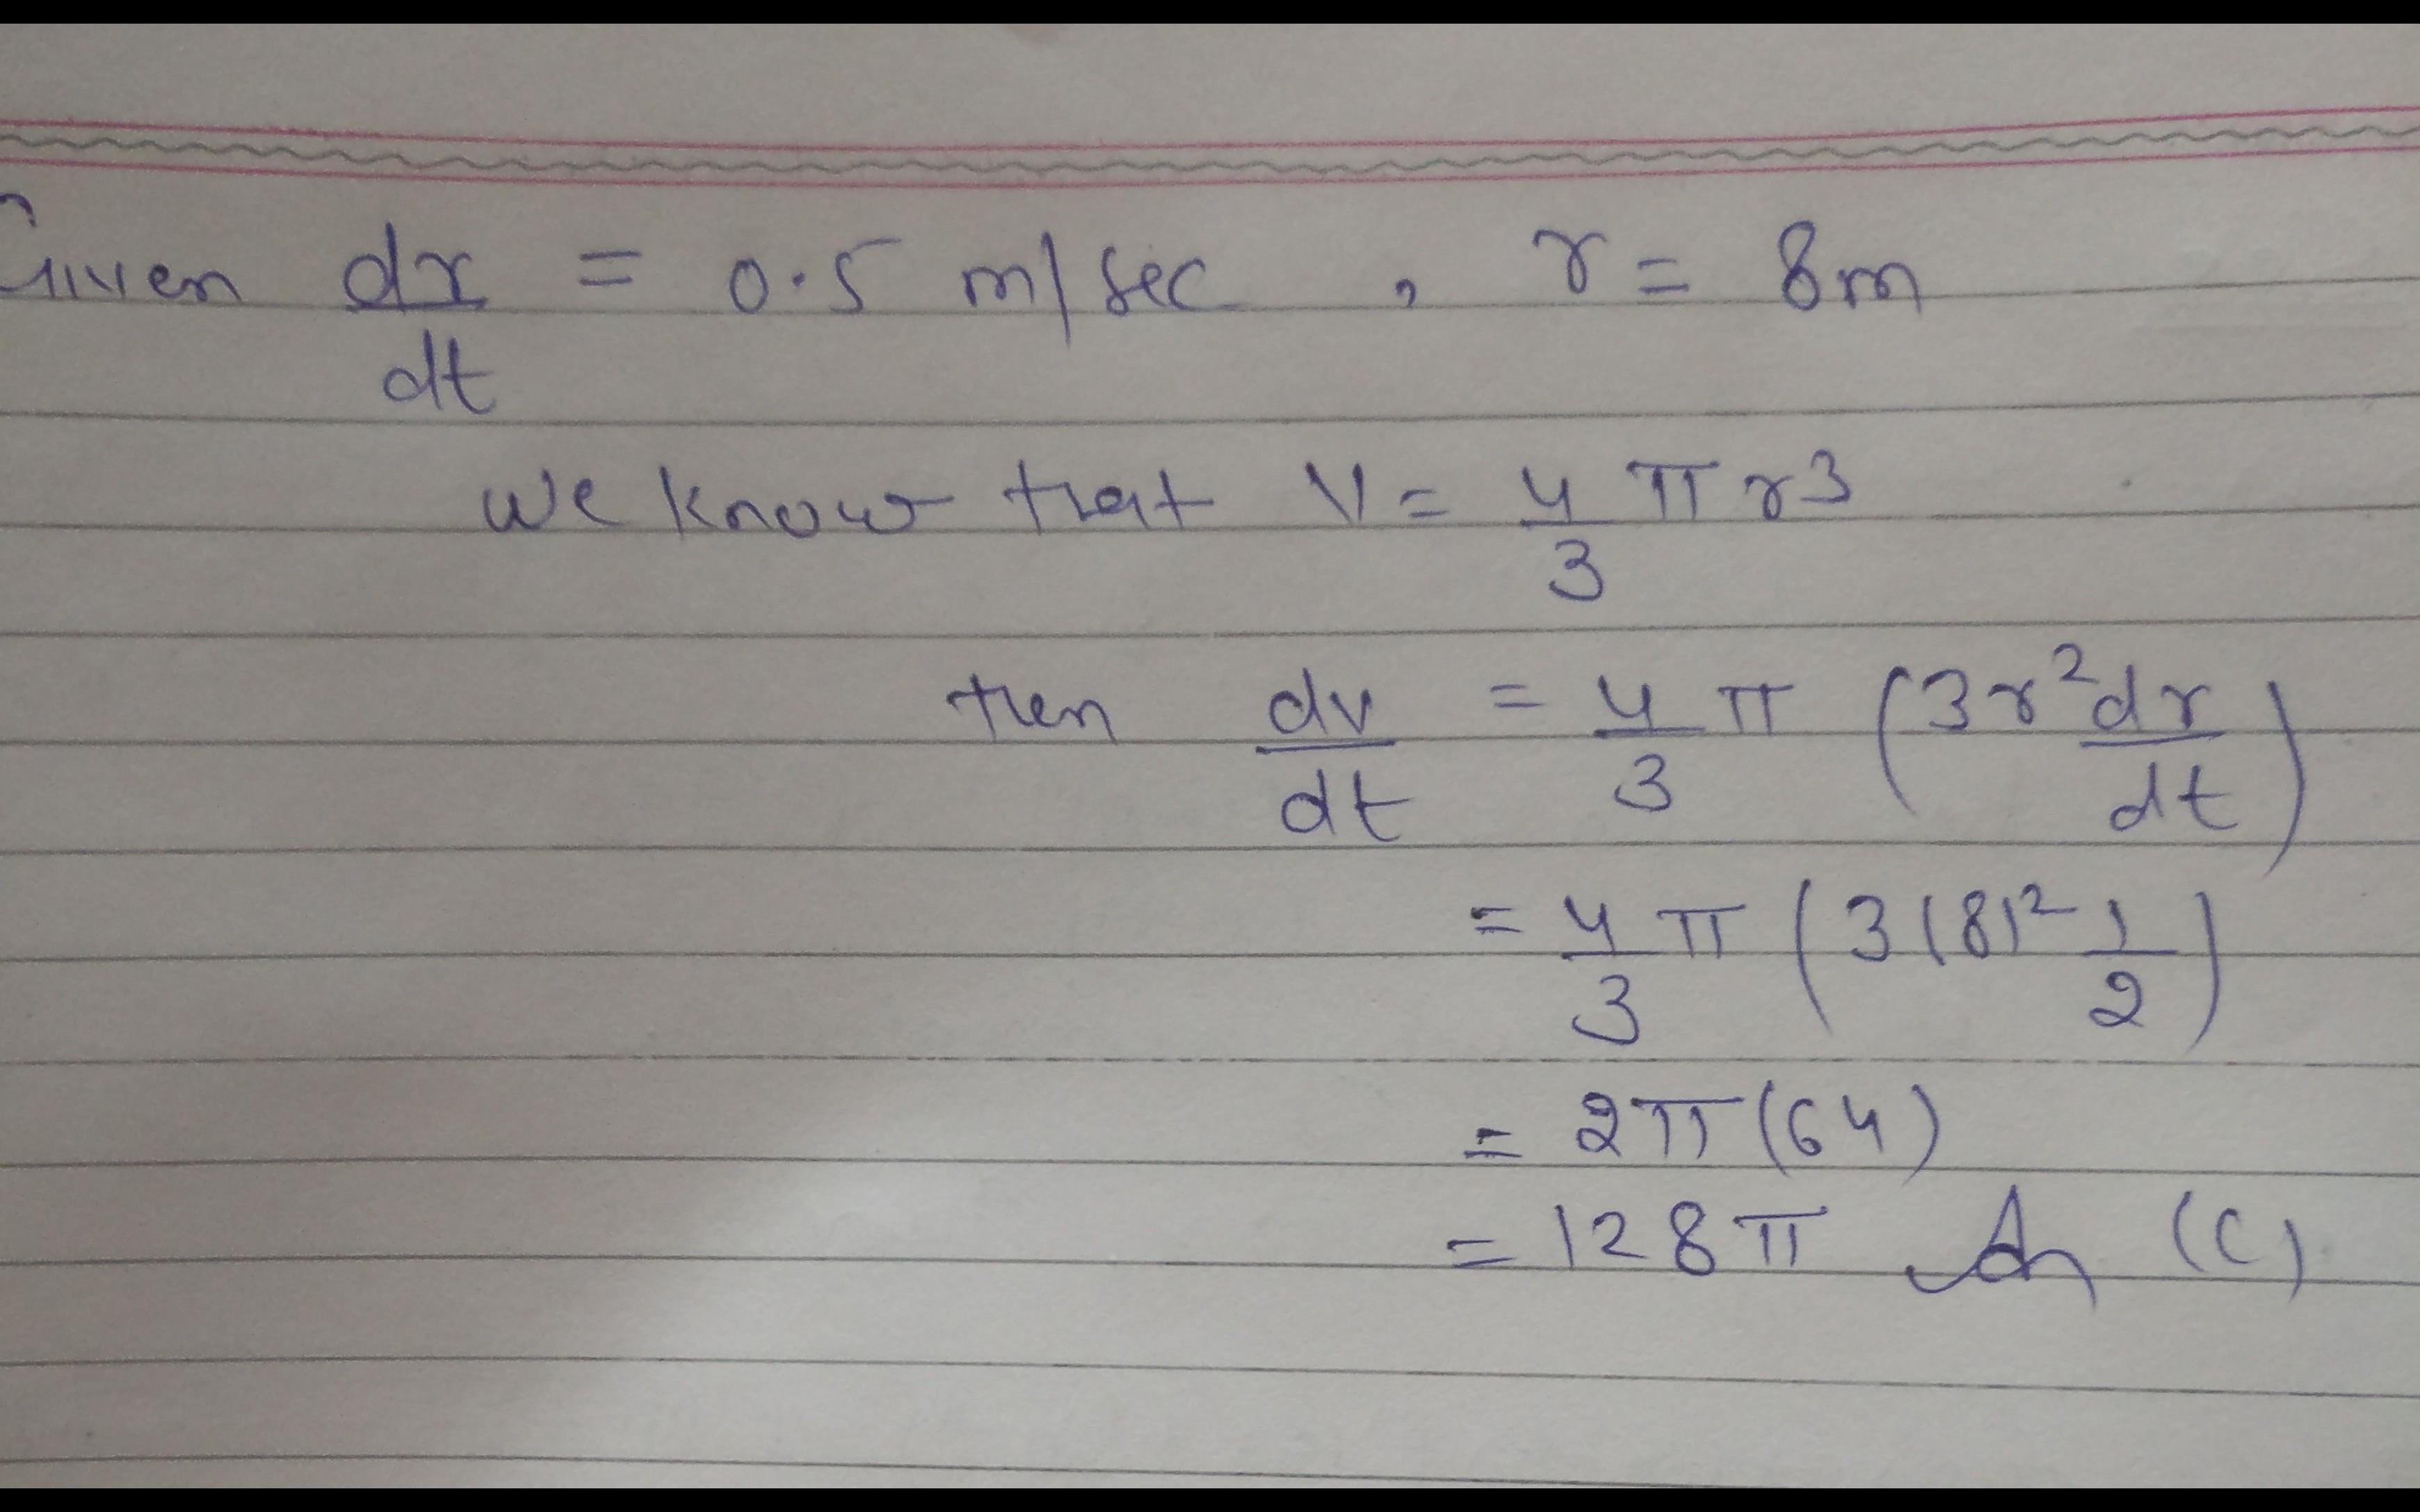 Given dr/dt = 0.5 m/sec , r = 8m
We know that V = 4/3 π r3
then dv/dt = 4/3 π (3r² dr/dt)
= 4/3 π (3(8)² 1/2)
= 2π(64)
= 128π An (C)